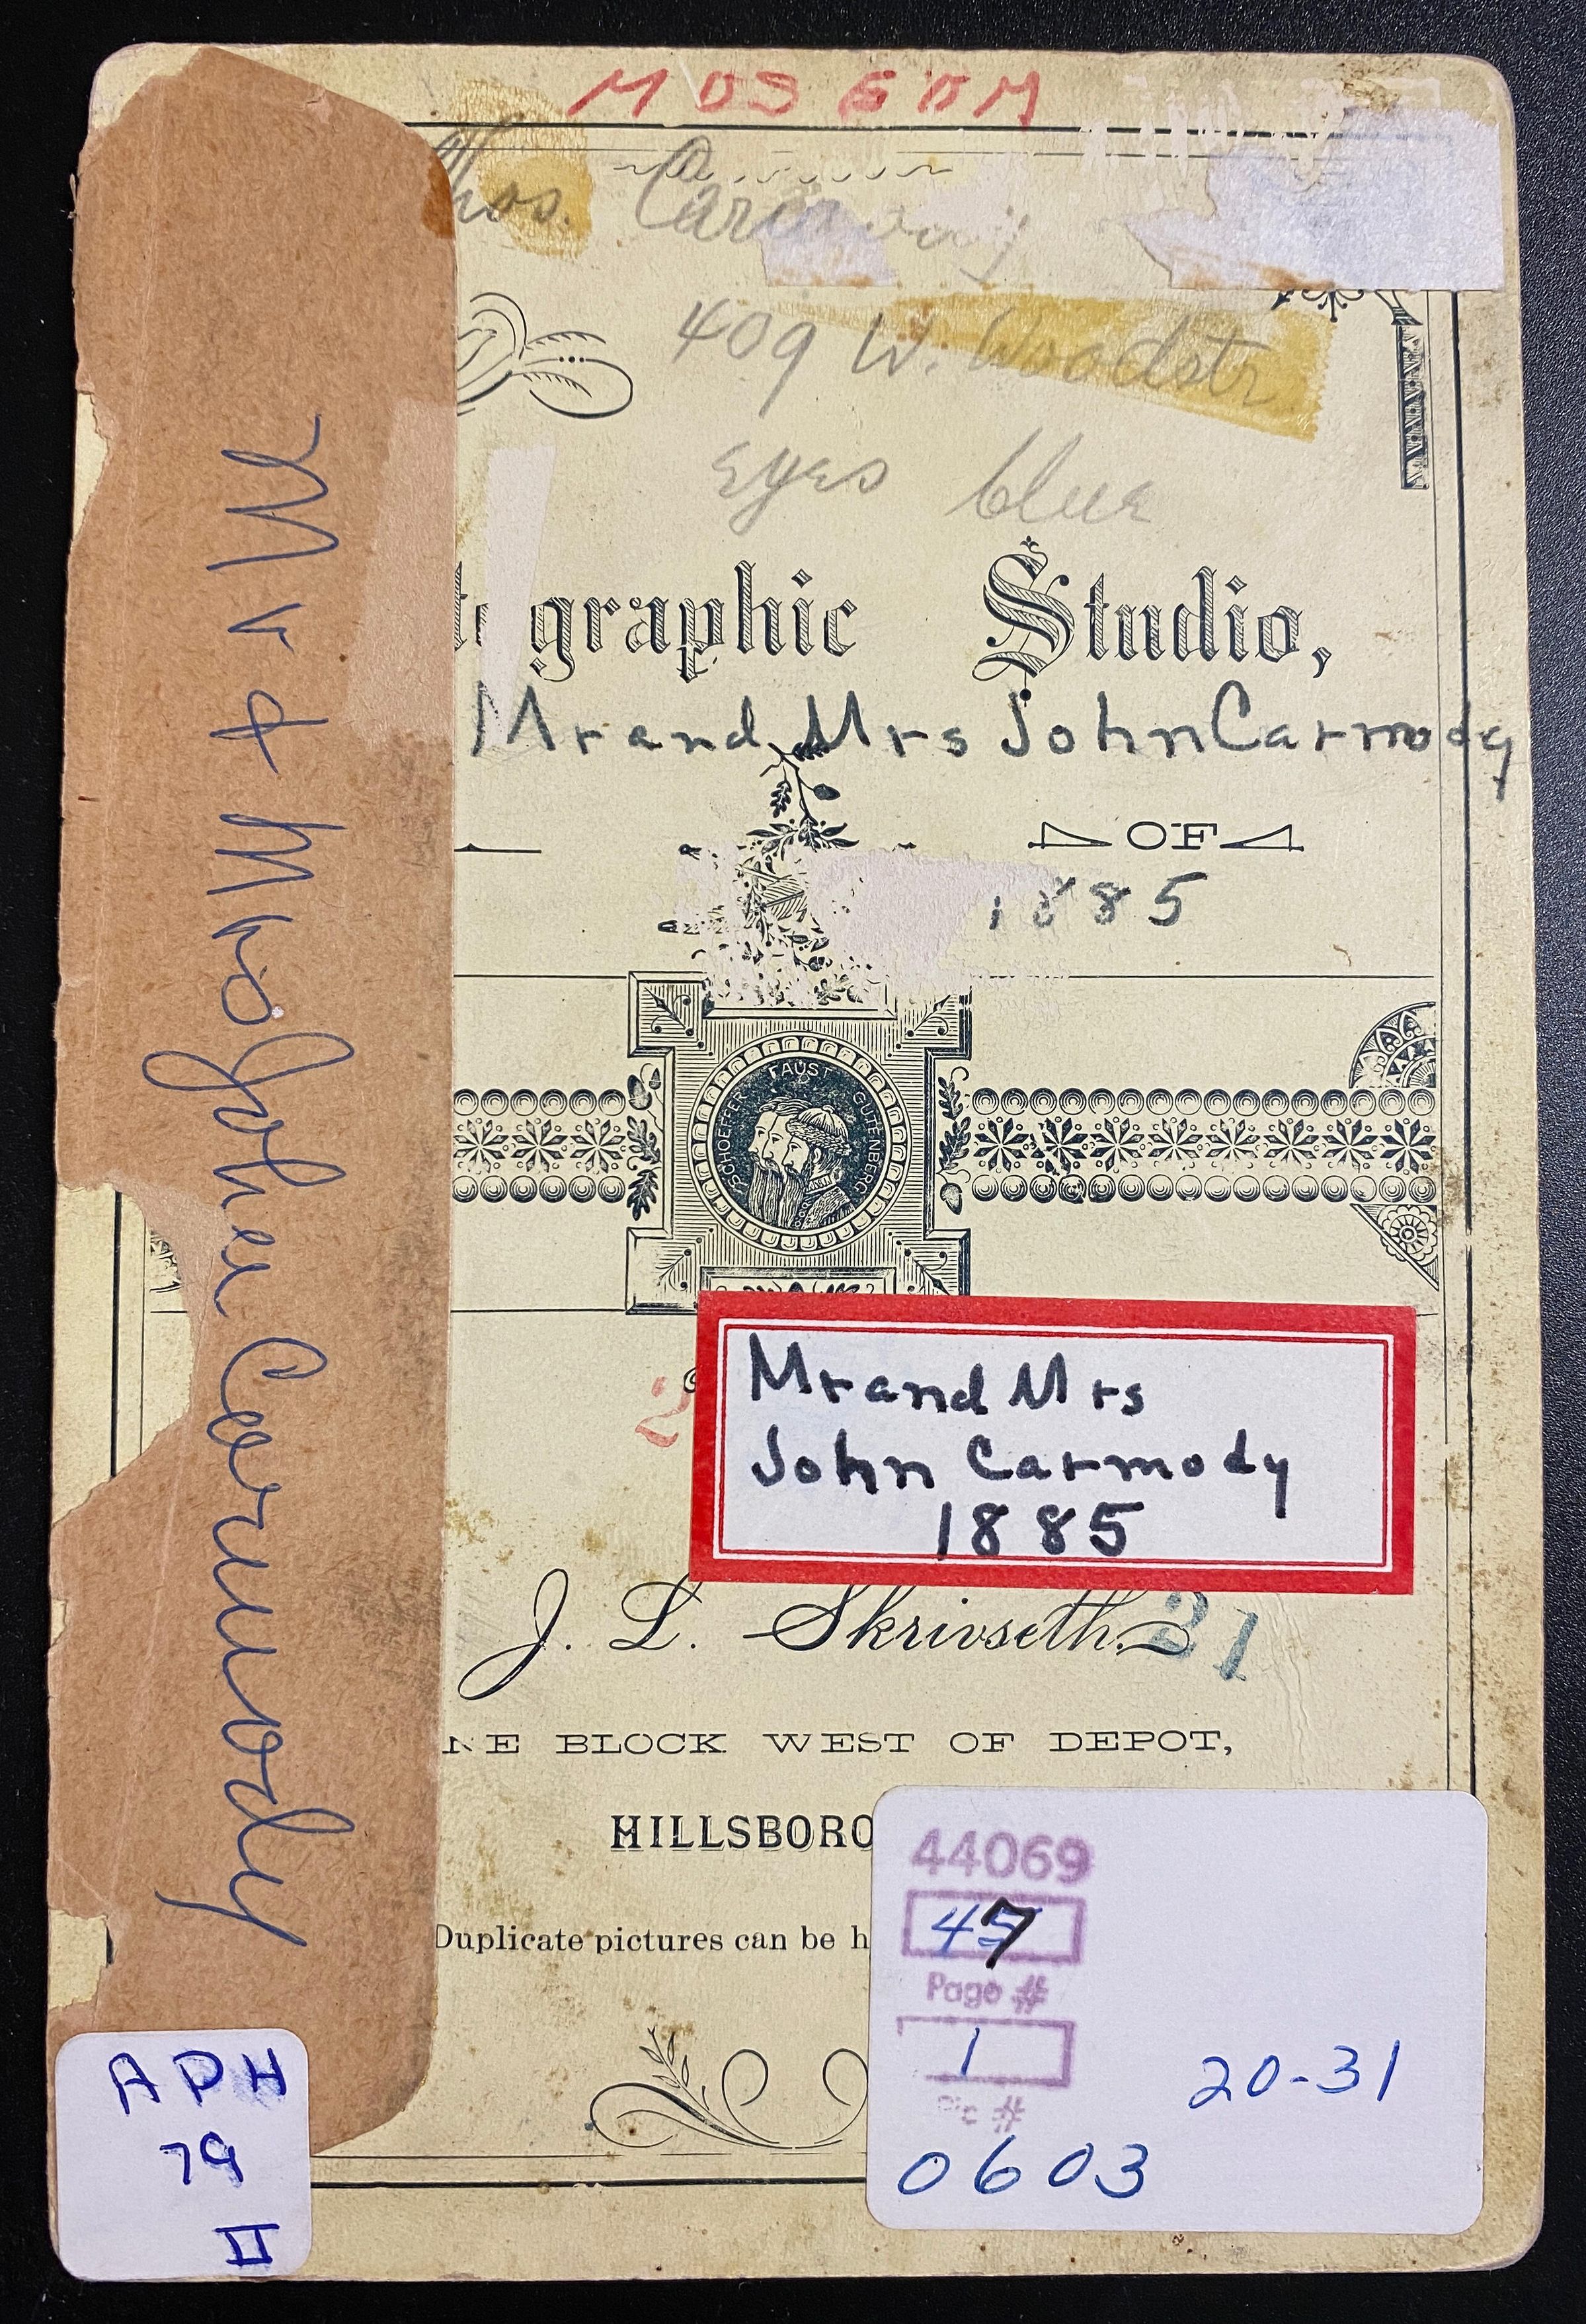 MUSEUM
Thos. Carmody
409 W. Woodstr
Eyes blue
graphic Studio,
Mr and Mrs John Carmody
OF
1885
SCHOEFFER FAUST GUTENBERG
Mr and Mrs
John Carmody
1885
J. L. Skrivseth.
31
NE BLOCK WEST OF DEPOT,
HILLSBORO
Duplicate pictures can be h
Mr & Mrs John Carmody
44069
47
Page #
1
#
20-31
0603
APH
79
II